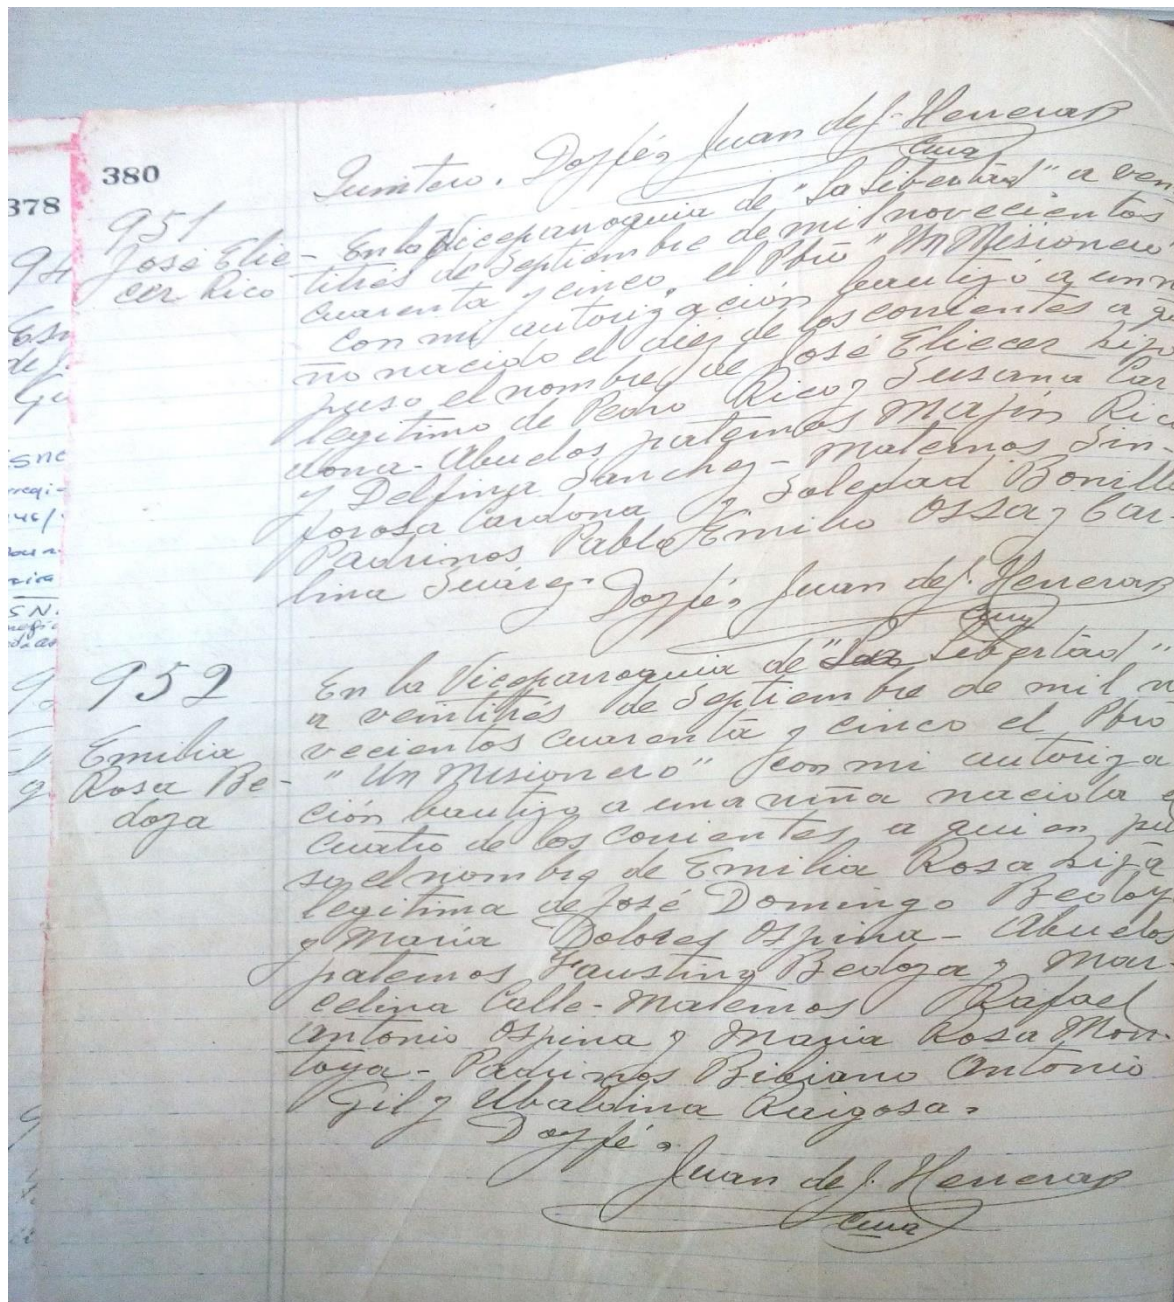 380
378
Quintero. Doy fé, Juan de J. Herrera
Cura
951
José Elie-
cer Rico
- En la Viceparroquia de "La Libertad" a vein
titrés de Septiembre de mil novecientos
cuarenta y cinco, el Pbro "Un Misionero
con mi autorización bautizó a un ni
ño nacido el diez de los corrientes a
puso el nombre de José Eliecer hijo
legitimo de Pedro Rico y Susana Car
dona - Abuelos paternos Majin Rico
y Delfina Sanchez - Maternos Sin-
forosa Cardona y Soledad Bonilla
Padrinos Pablo Emilio Ossa y Car
lina Suárez - Doy fé, Juan de J. Herrera
Cura
952
Emilia
Rosa Be-
doya
En la Viceparroquia de "La Libertad"
a veintitrés de Septiembre de mil no
vecientos cuarenta y cinco el Pbro
"Un Misionero" con mi autoriza
ción bautizo a una niña nacida e
cuatro de los corrientes, a quien pu
so el nombre de Emilia Rosa hija
legitima de José Domingo Bedoy
y María Dolores Ospina - Abuelos
paternos Faustino Bedoya y Mar-
celina Calle - Maternos Rafael
Antonio Ospina y Maria Rosa Mon-
toya - Padrinos Bibiano Antonio
Gil y Ubaldina Raigosa.
Doy fé,
Juan de J. Herrera
Cura